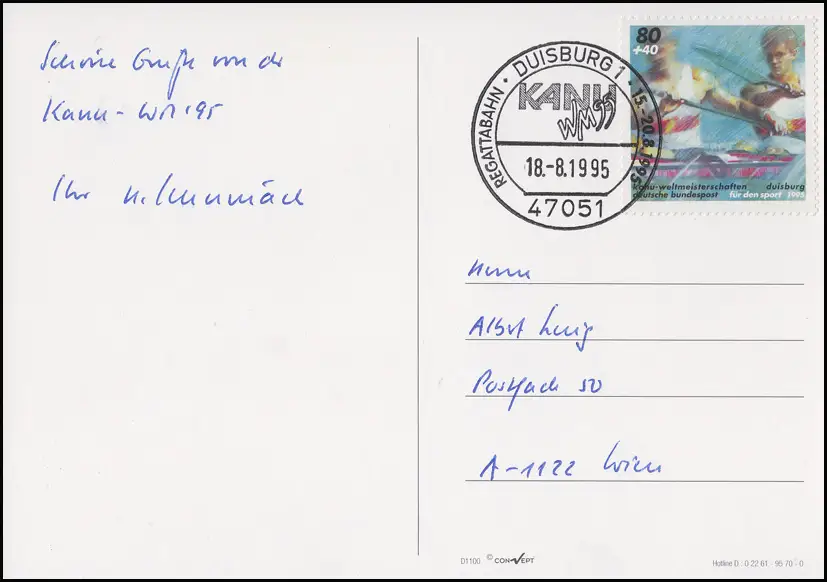 Schöne Grüße von der
Kanu-WM '95
Ihr
80
+40
kanu-weltmeisterschaften duisburg
deutsche bundespost für den sport 1995
REGATTABAHN · DUISBURG 1 · 15.-20.8.1995
KANU
WM 95
18.-8.1995
47051
Herrn
Albert
Postfach 50
A-1122 Wien
D1100 © CONVEPT
Hotline D : 0 22 61 - 95 70 - 0